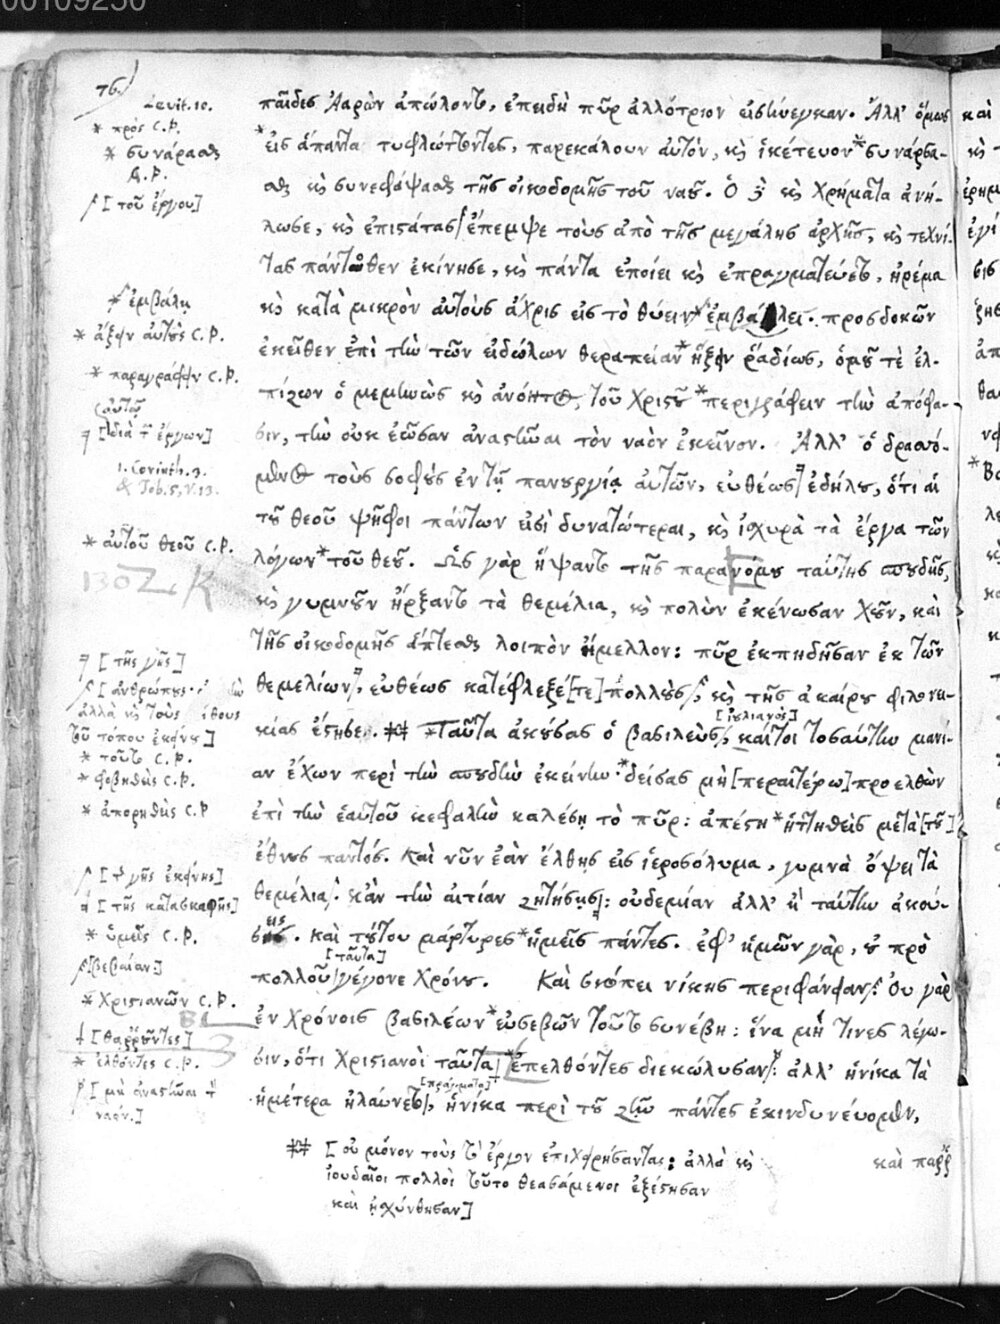 00109250
76)
Levit. 10.
* πρὸς C.P.
* συνάρασθαι
A.P.
[τοῦ ἔργου]
* ἐμβάλῃ
* ἄξειν αὐτοὺς C.P.
* παραγράφειν C.P.
[διὰ τῶν ἔργων]
1. Corinth. 3.
& Job. 5, v. 13.
* αὐτοῦ θεοῦ C.P.
130 Z K
[τῆς γῆς]
[ἀνθρώπους
ἀλλὰ καὶ τοὺς λίθους
τοῦ τόπου ἐκείνου]
* τοῦτο C.P.
* φοβηθεὶς C.P.
* ἀπορηθεὶς C.P
[τῆς γῆς ἐκείνης]
[τῆς κατασκαφῆς]
* ὑμεῖς C.P.
[βεβαίαν]
* Χριστιανῶν C.P.
[θαῤῥοῦντες]
* ἐλθόντες C.P.
[μὴ ἀναστῆναι τὸν
ναόν.]
παῖδες Ἀαρὼν ἀπώλοντο, ἐπειδὴ πῦρ ἀλλότριον εἰσήνεγκαν. Ἀλλ' ὅμως
* εἰς ἅπαντα τυφλώττοντες, παρεκάλουν αὐτόν, καὶ ἱκέτευον * συνάρξα-
σθαι καὶ συνεφάψασθαι τῆς οἰκοδομῆς τοῦ ναοῦ. Ὁ δὲ καὶ χρήματα ἀνή-
λωσε, καὶ ἐπιστάτας ἔπεμψε τοὺς ἀπὸ τῆς μεγάλης ἀρχῆς, καὶ τεχνί-
τας πάντοθεν ἐκίνησε, καὶ πάντα ἐποίει καὶ ἐπραγματεύετο, ἠρέμα
καὶ κατὰ μικρὸν αὐτοὺς ἄχρις εἰς τὸ θύειν * ἐμβάλλει. προσδοκῶν
ἐκεῖθεν ἐπὶ τὴν τῶν εἰδώλων θεραπείαν * ἥξειν ῥᾳδίως, ὁμοῦ τὲ ἐλ-
πίζων ὁ μεμηνὼς καὶ ἀνόητος, τοῦ Χριστοῦ * περιγράφειν τὴν ἀπόφα-
σιν, τὴν οὐκ ἐῶσαν ἀναστῆναι τὸν ναὸν ἐκεῖνον. Ἀλλ' ὁ δρασσό-
μενος τοὺς σοφοὺς ἐν τῇ πανουργίᾳ αὐτῶν, εὐθέως ἐδήλου, ὅτι αἱ
τοῦ θεοῦ ψῆφοι πάντων εἰσὶ δυνατώτεραι, καὶ ἰσχυρὰ τὰ ἔργα τῶν
λόγων * τοῦ θεοῦ. Ὡς γὰρ ἥψαντο τῆς παρανόμου ταύτης σπουδῆς,
καὶ γυμνοῦν ἤρξαντο τὰ θεμέλια, καὶ πολὺν ἐκένωσαν χοῦν, καὶ
τῆς οἰκοδομῆς ἅπτεσθαι λοιπὸν ἤμελλον: πῦρ ἐκπηδῆσαν ἐκ τῶν
θεμελίων, εὐθέως κατέφλεξέ[τε] πολλοὺς, καὶ τῆς ἀκαίρου φιλονει-
[ἰουλιανός]
κίας ἔστησε. ** * Ταῦτα ἀκούσας ὁ βασιλεὺς, καίτοι τοσαύτην μανί-
αν ἔχων περὶ τὴν σπουδὴν ἐκείνην. * δείσας μὴ [περαιτέρω] προελθὼν
ἐπὶ τὴν ἑαυτοῦ κεφαλὴν καλέσῃ τὸ πῦρ: ἀπέστη * ἡττηθεὶς μετὰ [τοῦ]
ἔθνους παντός. Καὶ νῦν ἐὰν ἔλθῃς εἰς ἱεροσόλυμα, γυμνὰ ὄψει τὰ
θεμέλια. κἂν τὴν αἰτίαν ζητήσῃς: οὐδεμίαν ἀλλ' ἢ ταύτην ἀκού-
σεις. Καὶ τούτου μάρτυρες * ἡμεῖς πάντες. ἐφ' ἡμῶν γὰρ, οὐ πρὸ
[ταῦτα]
πολλοῦ γέγονε χρόνου. Καὶ σκόπει νίκης περιφάνειαν. Οὐ γὰρ
ἐν χρόνοις βασιλέων * εὐσεβῶν τοῦτο συνέβη: ἵνα μή τινες λέγω-
σιν, ὅτι Χριστιανοὶ ταῦτα * ἐπελθόντες διεκώλυσαν: ἀλλ' ἡνίκα τὰ
[πράγματα]
ἡμέτερα ἠλαύνετο, ἡνίκα περὶ τοῦ ζῆν πάντες ἐκινδυνεύομεν,
** [οὐ μόνον τοὺς τῷ ἔργῳ ἐπιχειρήσαντας: ἀλλὰ καὶ
ἰουδαῖοι πολλοὶ τοῦτο θεασάμενοι ἐξέστησαν
καὶ ᾐσχύνθησαν]
καὶ παῤῥ